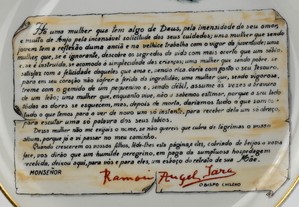 Há uma mulher que tem algo de Deus, pela imensidade do seu amor,
e muito de Anjo pela incansável solicitude dos seus cuidados; uma mulher que sendo
jovem tem a reflexão duma anciã e na velhice trabalha com o vigor da juventude; uma
mulher que, se é ignorante, descobre os segredos da vida com mais acerto que um sábio
e, se é instruída, se acomoda à simplicidade das crianças; uma mulher que sendo pobre, se
satisfaz com a felicidade daqueles que ama e, sendo rica, daria com gosto o seu tesouro,
para em seu coração não sofrer a ferida da ingratidão; uma mulher que, sendo vigorosa,
treme com o gemido de um pequenino e, sendo débil, assume às vezes a bravura
de um leão; uma mulher que, enquanto viva, não a sabemos estimar, porque a seu lado
todas as dores se esquecem, mas, depois de morta, daríamos tudo o que somos
e tudo o que temos para a ver de novo um só instante, para receber dela um só abraço,
para escutar uma só palavra dos seus lábios.
Dessa mulher não me exijais o nome, se não quereis que cubra de lágrimas o vosso
álbum, porque já a vi passar no meu caminho.
Quando crescerem os vossos filhos, lêde-lhes esta página, e eles, cobrindo de beijos a vossa
face, vos dirão que um humilde peregrino, em paga da sumptuosa hospedagem
recebida, deixou aqui, para vós e para eles, um esboço do retrato de sua Mãe.
MONSEÑOR
Ramon Angel Jara
OBISPO CHILENO